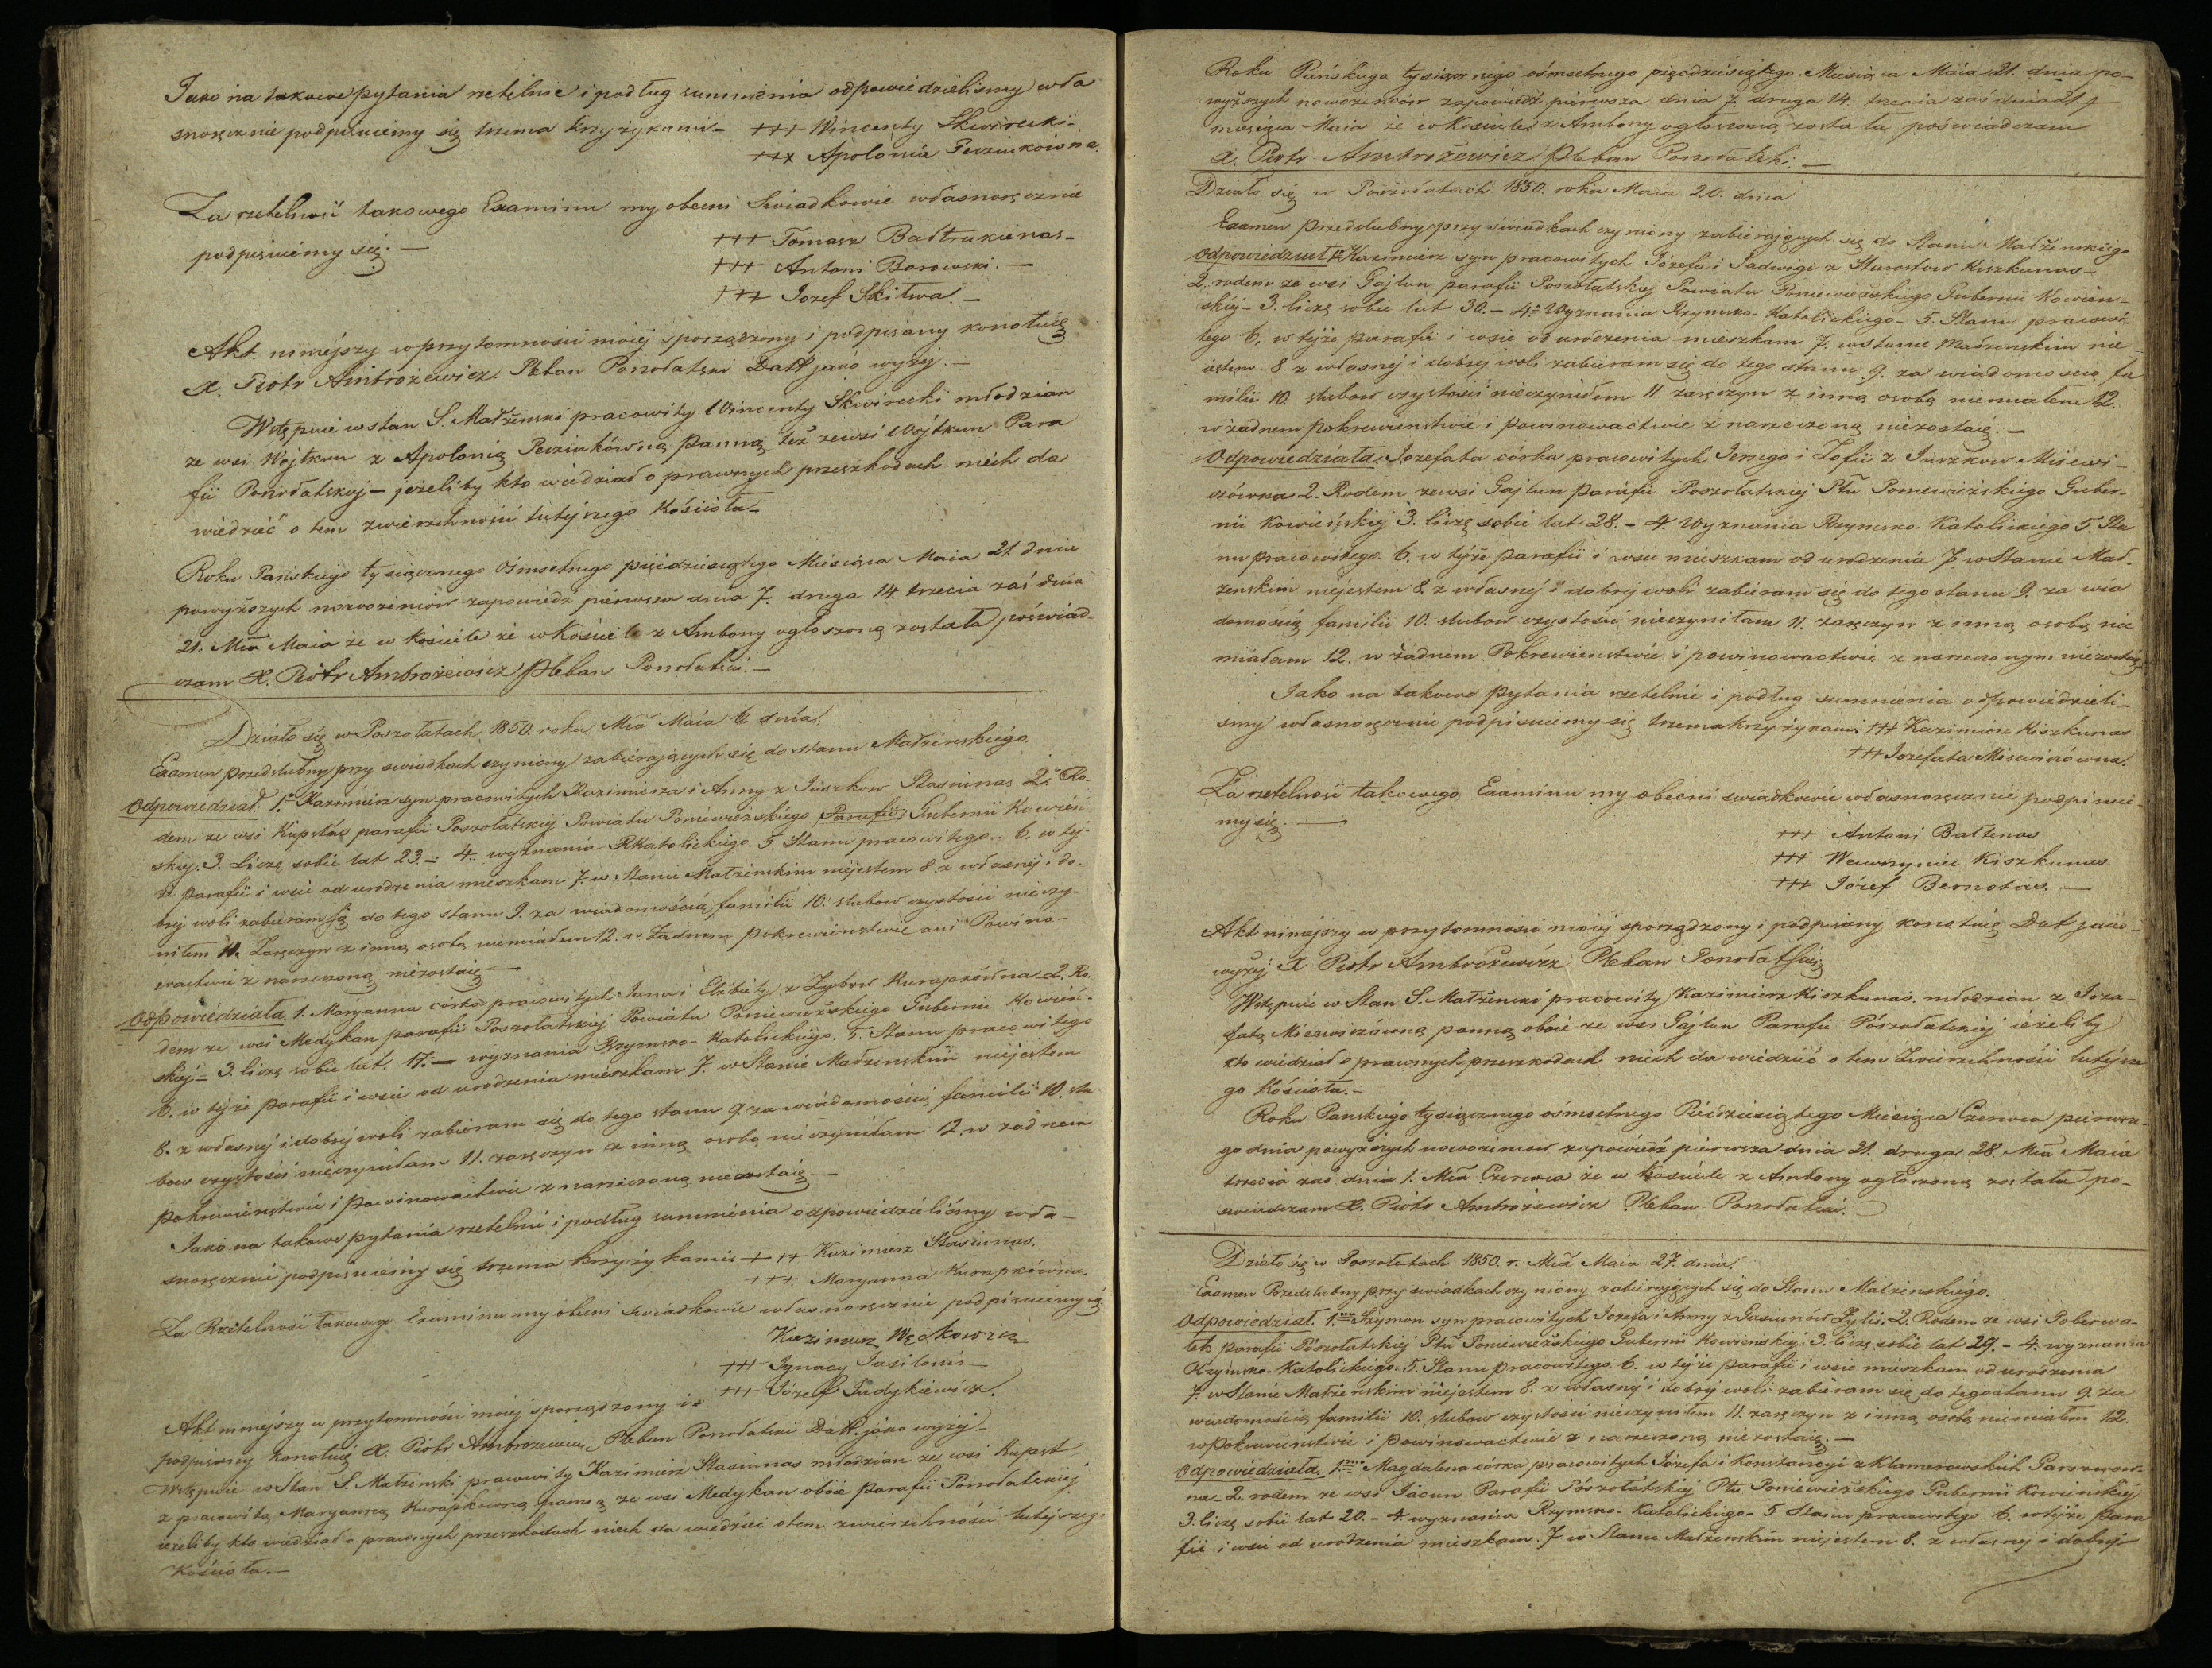 Jako na takowe pytania rzetelnie i podług summienia odpowiedzielismy wła
snoręcznie podpisuiemy się trzema krzyżykami – +++ Wincenty Skwirecki –
+++ Apolonia Pewziukówna.
Za rzetelność takowego Examinu my obecni Swiadkowie własnoręcznie
podpisuiemy się. — +++ Tomasz Bałtrukienas –
+++ Antoni Barowski. –
+++ Jozef Skitwa –
Akt niniejszy w przytomności moiej sporządzony i podpisany konotuię
X. Piotr Ambrożewicz Pleban Poszołatski Datt jako wyżej. –
Wstępuie w stan S. Małżenski pracowity Wincenty Skwirecki młodzian
ze wsi Wojtkun z Apolonią Pewziukówną Panną też ze wsi Wojtkun Para
fii Poszołatskiej – jeżeliby kto wiedział o prawnych przeszkodach niech da
wiedzieć o tem zwierzchności tutejszego Kościoła –
Roku Pańskiego tysiącznego Ośmsetnego pięćdziesiątego Miesiąca Maia 21 dnia
powyższych nowożeńców zapowiedź pierwsza dnia 7. druga 14. trzecia zaś dnia
21. Mca Maia że w kościele że w Kościele z Ambony ogłoszoną została poświad-
czam X. Piotr Ambrożewicz Pleban Poszołatski. –
Działo się w Poszołatach 1850. roku Mca Maia 6. dnia.
Examen przedslubny przy swiadkach czyniony zabierających się do stanu Małżenskiego.
Odpowiedział. 1. Kazimierz syn pracowitych Kazimierza i Anny z Juszkow Stasiunas 2. Ro-
dem ze wsi Kupstas parafii Poszołatskiej Powiatu Poniewieżskiego Parafii Gubernii Kowień
skiej. 3. Liczę sobie lat 23. – 4. wyznania RKatolickiego. 5. Stanu pracowitego – 6. w tej-
że parafii i wsie od urodzenia mieszkam 7. w Stanie Małżenskim niejestem 8. z własnej i do-
brej woli zabieram się do tego stanu 9. za wiadomością familii 10. slubow czystości nieczy-
niłem 11. Zaręczyn z inną osobą niemiałem 12. w żadnem pokrewieństwie ani Powino-
wactwie z narzeczoną niezostaię –
Odpowiedziała 1. Maryanna córka pracowitych Jana i Elżbiety z Zybow Kurapkówna 2. Ro.
dem ze wsi Medykan parafii Poszolatskiej Powiatu Poniewieżskiego Gubernii Kowień-
skiej – 3. liczę sobie lat. 17. – wyznania Rzymsko-Katolickiego. 5. Stanu pracowitego
6. w tejże parafii i wsie od urodzenia mieszkam 7. w Stanie Małżenskim niejestem
8. z własnej i dobrej woli zabieram się do tego stanu 9. za wiadomością familii 10. slu
bow czystości nieczyniłam 11. zaręczyn z inną osobą nieczyniłam 12. w żadnem
pokrewieństwie i powinowactwie z narzeczoną niezostaię –
Jako na takowe pytania rzetelnie i podług summienia odpowiedzieliśmy wła-
snoręcznie podpisuiemy się trzema krzyżykami – +++ Kazimierz Stasiunas.
+++ Maryanna Kurapkówna.
Za Rzetelność takowego Examinu my obecni swiadkowie własnoręcznie podpisuiemy się
Kazimierz Węckowicz
+++ Ignacy Jasilonis –
+++ Józef Judykiewicz.
Akt niniejszy w przytomności moiej sporządzony i
podpisany konotuię X. Piotr Ambrożewicz Pleban Poszołatski Datt. jako wyżej –
Wstępuie w Stan S. Małżenski pracowity Kazimierz Stasiunas młodzian ze wsi Kupst
z pracowitą Maryanną Kurapkowną panną ze wsi Medykan oboie parafii Poszołatskiej
ieżeliby kto wiedział o prawnych przeszkodach niech da wiedzieć o tem zwierzchności tutejszego
Kościoła. –
Roku Pańskiego tysiącznego ośmsetnego pięćdziesiątego Miesiąca Maia 21. dnia po-
wyższych nowożeńców zapowiedź pierwsza dnia 7. druga 14. trzecia zaś dnia 21.
miesiąca Maia że w Kościele z Ambony ogłoszoną została poświadczam
X. Piotr Ambrożewicz Pleban Poszołatski. –
Działo się w Poszołatach 1850. roku Maia 20. dnia
Examen Przedslubny przy swiadkach czyniony zabierających się do Stanu Małżenskiego
Odpowiedział 1. Kazimierz syn pracowitych Józefa i Jadwigi z Starostow Kiszkunas –
2. rodem ze wsi Gajlun parafii Poszołatskiej Powiatu Poniewieżskiego Gubernii Kowień-
skiej – 3. liczę sobie lat 30. – 4. Wyznania Rzymsko-Katolickiego – 5. Stanu pracowi-
tego 6. w tejże parafii i wsie od urodzenia mieszkam 7. w stanie Małżenskim nie
iestem – 8. z własnej i dobrej woli zabieram się do tego stanu 9. za wiadomością fa
milii 10. slubow czystości nieczyniłem 11. zaręczyn z inną osobą niemiałem 12.
w żadnem pokrewienstwie i powinowactwie z narzeczoną niezostaię. –
Odpowiedziała. Jozefata córka pracowitych Jerzego i Zofii z Juszkow Misewi-
czówna 2. Rodem ze wsi Gajlun parafii Poszołatskiej Ptu Poniewieżskiego Guber-
nii Kowieńskiej 3. liczę sobie lat 28. – 4 Wyznania Rzymsko-Katolickiego 5. Sta
nu pracowitego. 6. w tejże parafii i wsie mieszkam od urodzenia 7. w Stanie Mał-
żenskim niejestem 8. z własnej i dobrej woli zabieram się do tego stanu 9. za wia
domością familii 10. slubow czystości nieczyniłam 11. zaręczyn z inną osobą nie
miałam 12. w żadnem Pokrewienstwie i powinowactwie z narzeczonym niezostaię
Jako na takowe Pytania rzetelnie i podług summienia odpowiedzieli-
smy własnoręcznie podpisuiemy się trzema krzyżykami +++ Kazimierz Kiszkunas
+++ Jozefata Misewiczówna.
Za rzetelność takowego Examinu my obecni swiadkowie własnoręcznie podpisuie-
my się. —
+++ Antoni Bałtenas
+++ Wawrzyniec Kiszkunas
+++ Józef Bernotas. –
Akt niniejszy w przytomności moiej sporządzony i podpisany konotuię Dat jako-
wyżej X Piotr Ambrożewicz Pleban Poszołatski
Wstępuie w Stan S. Małżenski pracowity Kazimierz Kiszkunas. młodzian z Joza-
fatą Misewiczówną panną oboie ze wsi Gajlun Parafii Poszołatskiej ieżeliby
kto wiedział o prawnych przeszkodach niech da wiedzieć o tem Zwierzchności tutejsze
go Kościoła. –
Roku Panskiego tysiącznego ośmsetnego Pięćdziesiątego Miesiąca Czerwca pierwsze-
go dnia powyższych nowożeńców zapowiedź pierwsza dnia 21. druga 28. Mca Maia
trzecia zaś dnia 1. Mca Czerwca że w Kościele z Ambony ogłoszoną została po-
swiadczam X. Piotr Ambrożewicz Pleban Poszołatski.
Działo się w Poszołatach 1850. r. Mca Maia 27. dnia.
Examen Przedslubny przy swiadkach czyniony zabierających się do Stanu Małżenskiego.
Odpowiedział. 1. Szymon syn pracowitych Jozefa i Anny z Gasiunów Zylis. 2. Rodem ze wsi Poberwa-
lek parafii Poszołatskiej Ptu Poniewieżskiego Gubernii Kowieńskiej. 3. liczę sobie lat 29. – 4. wyznania
Rzymsko-Katolickiego. 5. Stanu pracowitego. 6. w tejże parafii i wsie mieszkam od urodzenia
7. w Stanie Małżenskim niejestem 8. z własnej i dobrej woli zabieram się do tego stanu 9. za
wiadomością familii 10. slubow czystości nieczyniłem 11. zaręczyn z inną osobą niemiałem 12.
w Pokrewieństwie i powinowactwie z narzeczoną nie zostaię. –
Odpowiedziała. 1. Magdalena córka pracowitych Józefa i Konstancyi z Klamerowskich
na – 2. rodem ze wsi Jacun Parafii Poszołatskiej Ptu Poniewieżskiego Gubernii Kowieńskiej
3. liczę sobie lat 20. – 4 wyznania Rzymsko-Katolickiego – 5. Stanu pracowitego. 6. w tejże Para
fii i wsie od urodzenia mieszkam. 7 w Stanie Małżenskim niejestem 8. z własnej i dobrej